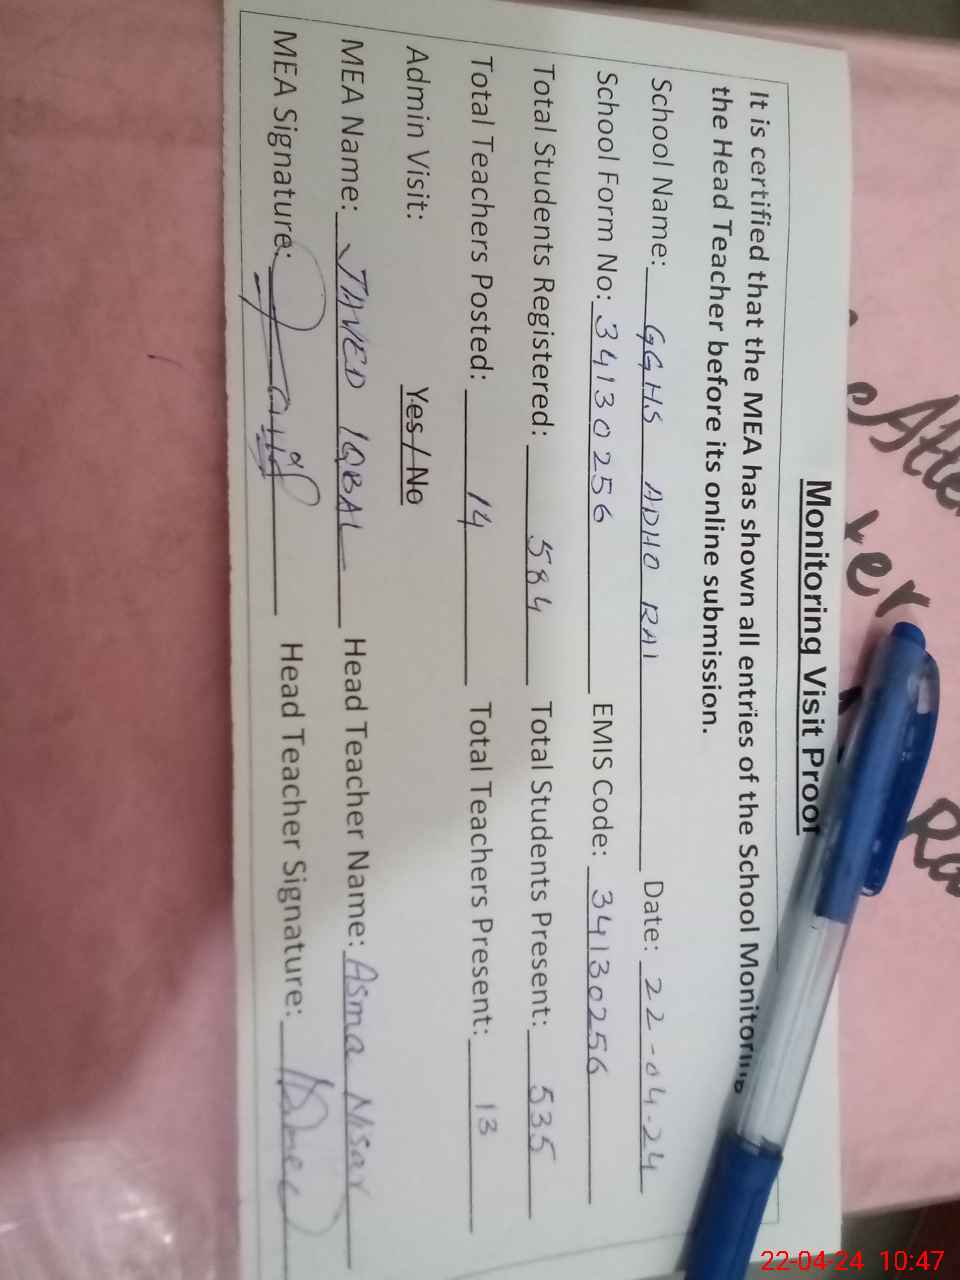 Monitoring Visit Proof
It is certified that the MEA has shown all entries of the School Monitoring
the Head Teacher before its online submission.
School Name: GGHS ADHO RAI Date: 22-04-24
School Form No: 34130256 EMIS Code: 34130256
Total Students Registered: 584 Total Students Present: 535
Total Teachers Posted: 14 Total Teachers Present: 13
Admin Visit: Yes / No
MEA Name: JAVED IQBAL Head Teacher Name: Asma Nisar
MEA Signature: Head Teacher Signature:
22-04-24 10:47